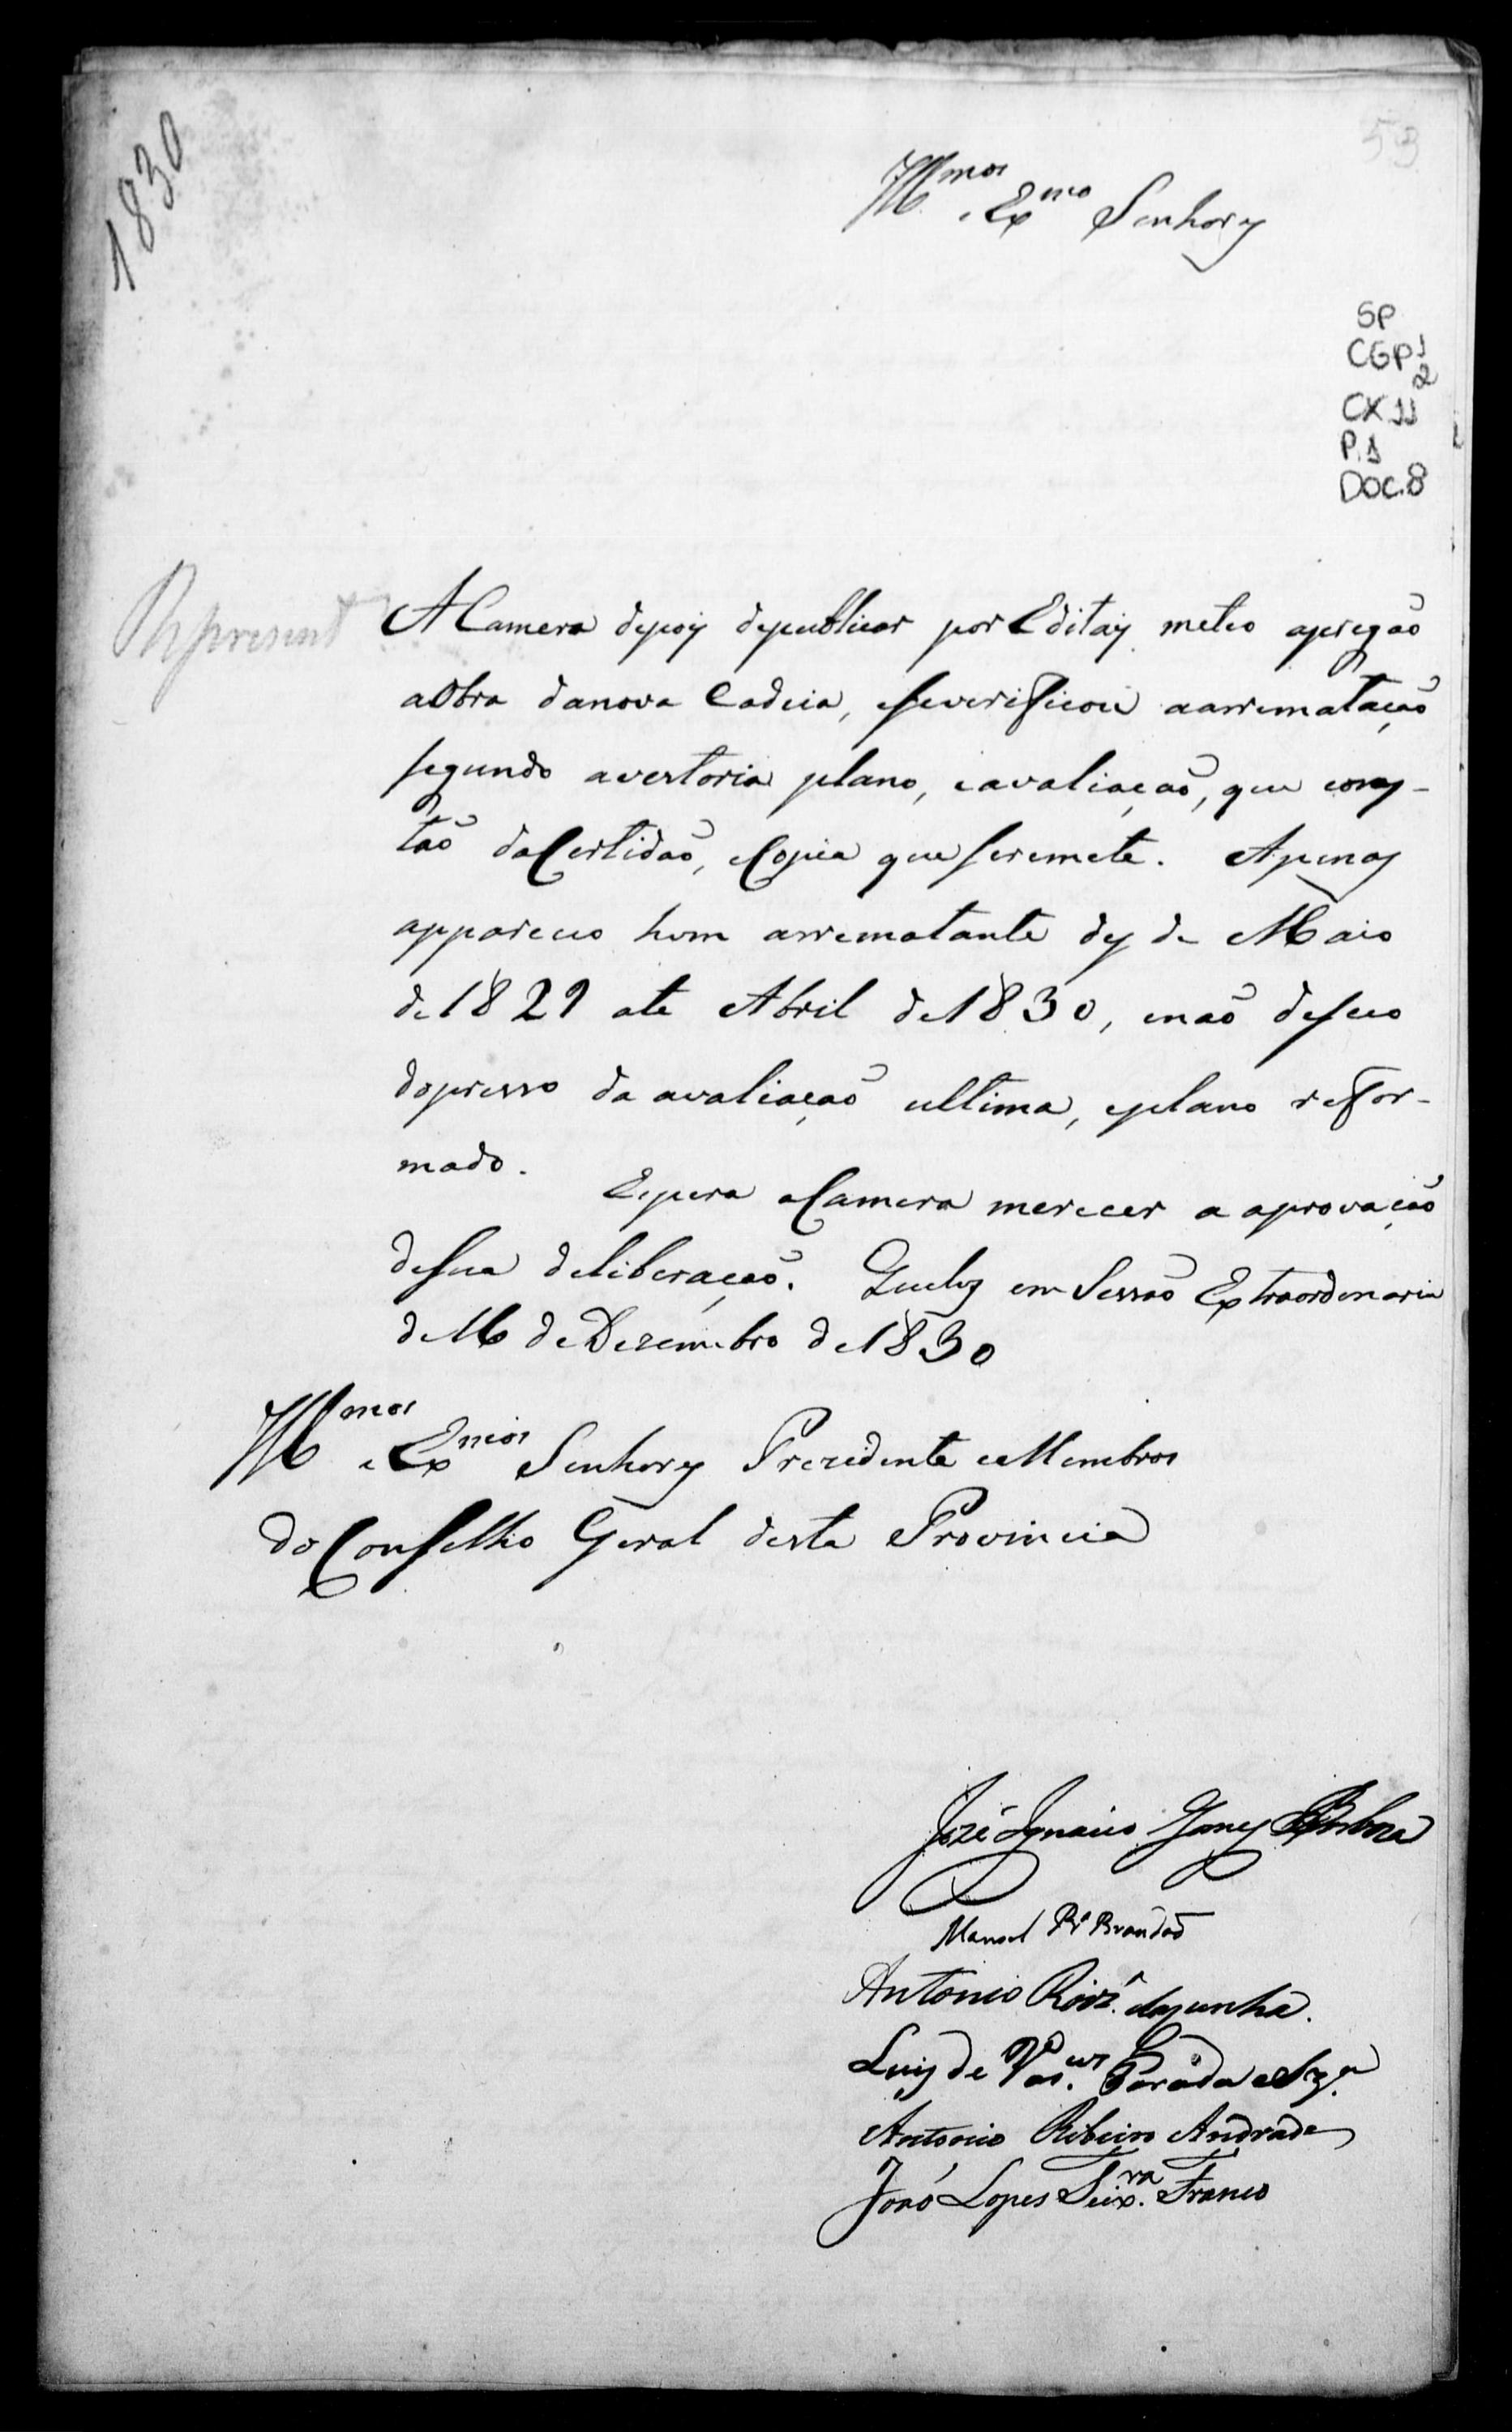 1830
53
Illmos e Exmos Senhores
SP
CGP1
2
CX11
P.1
DOC.8
Represent
A Camera depois depublicar por Editais meteo apregaõ
aObra danova Cadeia, eseverificou aarremataçaõ
segundo avestoria plano, eavaliaçaõ, que cons-
taõ daCertidaõ, eCopia que seremete. Apenas
appareceo hum arrematante des de Maio
de 1829 ate Abril de 1830, enaõ desceo
dopresso da avaliaçaõ ultima, eplano refor-
mado.
Espera aCamera merecer a aprovaçaõ
desua deliberaçaõ. Queluz em Sessaõ Extraordenaria
de de Dezembro de 1830
Illmos e Exmos Senhores Prezidente eMembros
do Conselho Geral desta Provincia
José Ignacio Gomes Barboza
Manoel Pr.ª Brandaõ
Antonio Roiz. daCunha.
Luis de Vas.cos Parada eSz.ª
Antonio Ribeiro Andrade
Joaõ Lopes Teix.ra Franco